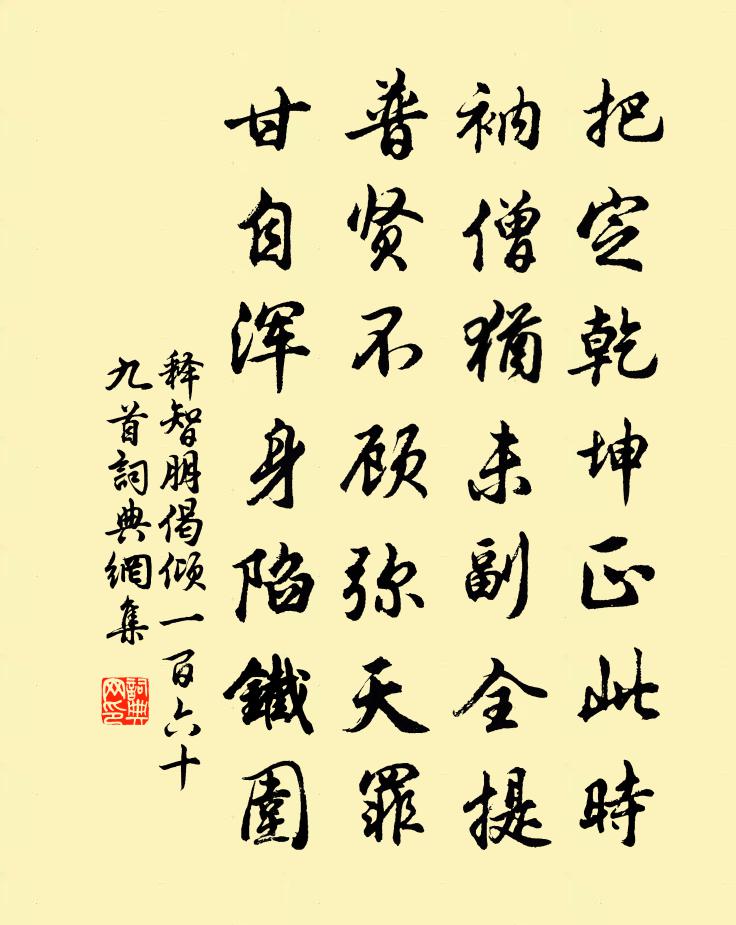 把定乾坤正此時
衲僧猶未副全提
普贤不顾弥天罪
甘自浑身陷鐵圍
释智朋偈倾一百六十
九首詞典網集
詞典网印